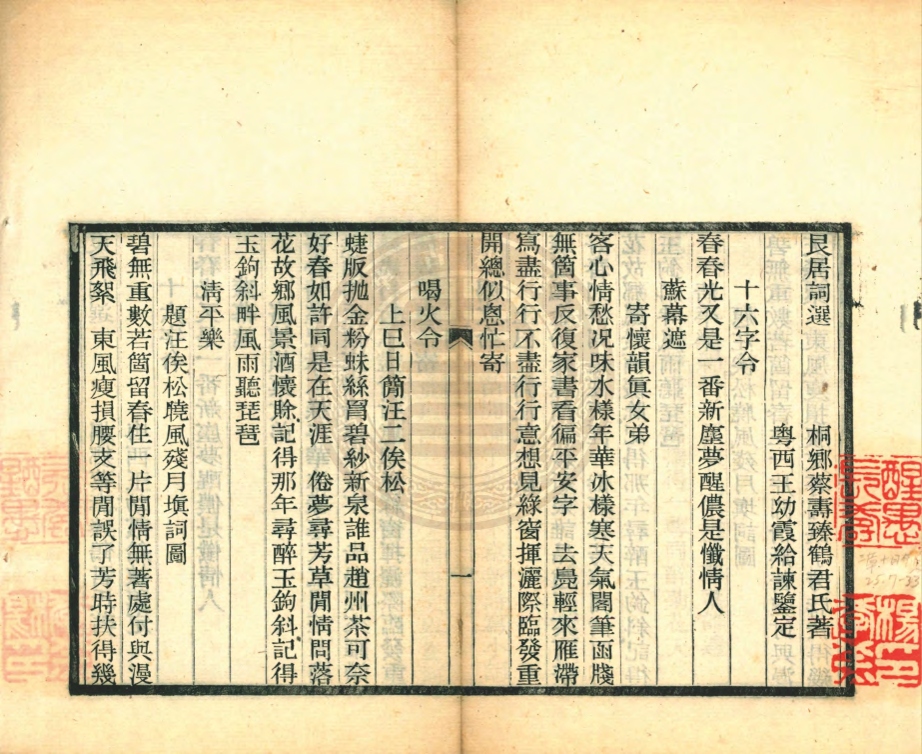 艮居詞選　桐鄉蔡壽臻鶴君氏著
粵西王幼霞給諫鑒定
十六字令
春春光又是一番新塵夢醒儂是懺情人
蘇幕遮
寄懷韻眞女弟
客心情愁况味水樣年華冰樣寒天氣閣筆函牋
無箇事反復家書看徧平安字　去鳧輕來雁滯
寫盡行行不盡行行意想見綠窗揮灑際臨發重
開總似恖忙寄
喝火令
上巳日簡汪二俟松
蜨版抛金粉蛛絲罥碧紗新泉誰品趙州茶可奈
好春如許同是在天涯　倦夢尋芳草閒情問落
花故鄉風景酒懷賒記得那年尋醉玉鉤斜記得
玉鉤斜畔風雨聽琵琶
淸平樂
題汪俟松曉風殘月塡詞圖
碧無重數若箇留春住一片閒情無著處付與漫
天飛絮　東風瘦損腰支等閒誤了芳時扶得幾
一